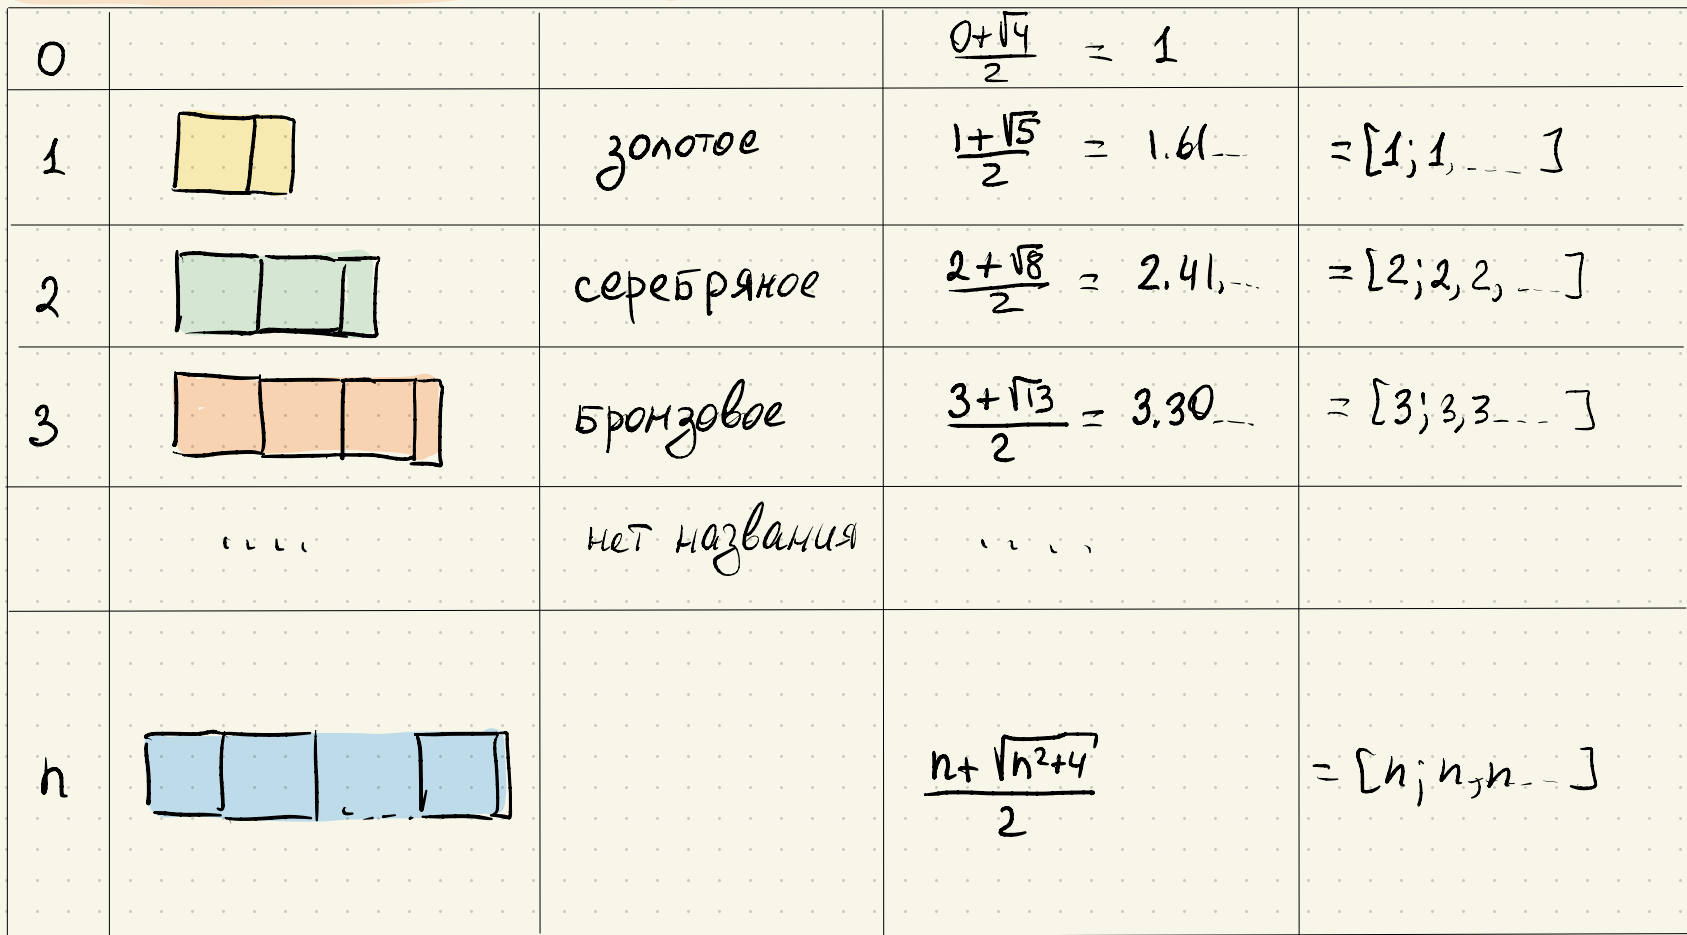 0 (0+√4)/2 = 1
1 золотое (1+√5)/2 = 1.61... = [1; 1, ....]
2 серебряное (2+√8)/2 = 2.41... = [2; 2, 2, ...]
3 бронзовое (3+√13)/2 = 3.30... = [3; 3, 3....]
.... нет названия ....
n (n+√(n²+4))/2 = [n; n, n...]